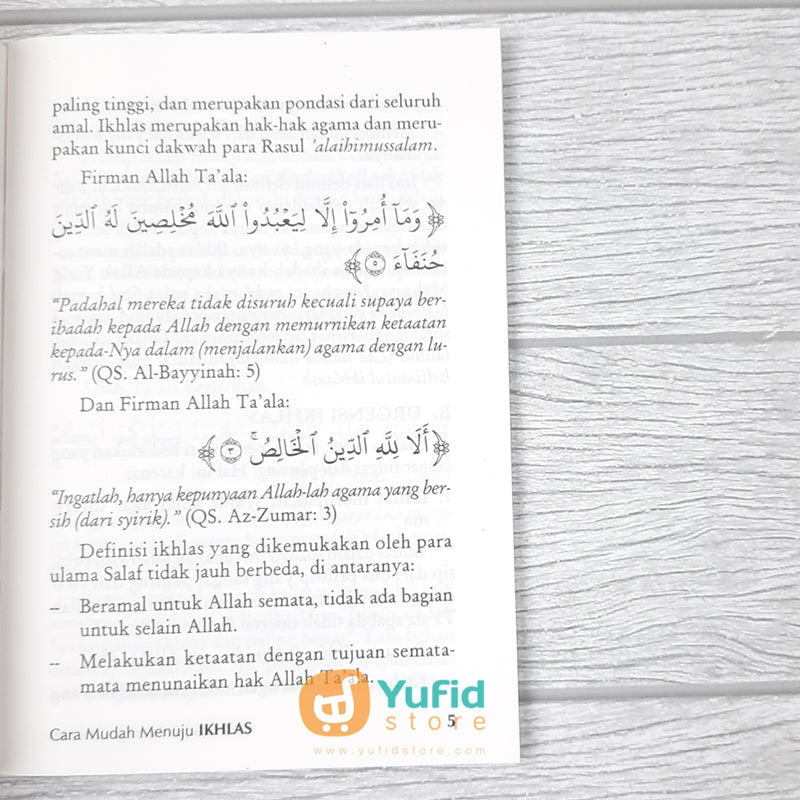 paling tinggi, dan merupakan pondasi dari seluruh
amal. Ikhlas merupakan hak-hak agama dan meru-
pakan kunci dakwah para Rasul 'alaihimussalam.
Firman Allah Ta'ala:
﴿ وَمَآ أُمِرُوٓا۟ إِلَّا لِيَعْبُدُوا۟ ٱللَّهَ مُخْلِصِينَ لَهُ ٱلدِّينَ
حُنَفَآءَ ۝٥ ﴾
"Padahal mereka tidak disuruh kecuali supaya ber-
ibadah kepada Allah dengan memurnikan ketaatan
kepada-Nya dalam (menjalankan) agama dengan lu-
rus." (QS. Al-Bayyinah: 5)
Dan Firman Allah Ta'ala:
﴿ أَلَا لِلَّهِ ٱلدِّينُ ٱلْخَالِصُ ۚ ۝٣ ﴾
"Ingatlah, hanya kepunyaan Allah-lah agama yang ber-
sih (dari syirik)." (QS. Az-Zumar: 3)
Definisi ikhlas yang dikemukakan oleh para
ulama Salaf tidak jauh berbeda, di antaranya:
– Beramal untuk Allah semata, tidak ada bagian
untuk selain Allah.
– Melakukan ketaatan dengan tujuan semata-
mata menunaikan hak Allah Ta'ala.
Cara Mudah Menuju IKHLAS 5
Yufid
store
www.yufidstore.com